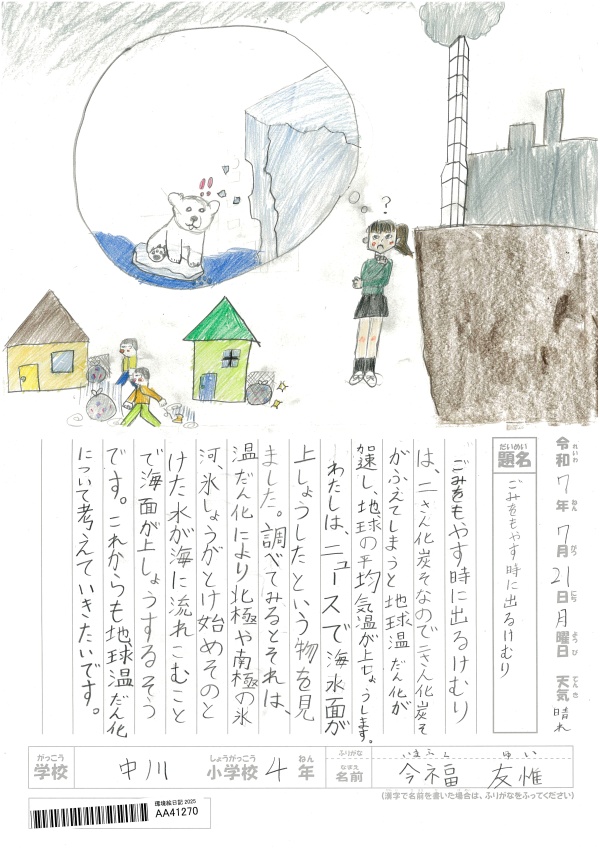 !!
?
令和7年7月21日月曜日 天気 晴れ
れいわ ねん がつ にち ようび てんき
だいめい
題名
ごみをもやす時に出るけむり
ごみをもやす時に出るけむり
は、二さん化炭そなので二さん化炭そ
がふえてしまうと地球温だん化が
加速し、地球の平均気温が上しょうします。
わたしは、ニュースで海水面が
上しょうしたという物を見
ました。調べてみるとそれは、
温だん化により北極や南極の氷
河、氷しょうがとけ始めそのと
けた水が海に流れこむこと
で海面が上しょうするそう
です。これからも地球温だん化
について考えていきたいです。
がっこう しょうがっこう ねん ふりがな いまふく ゆい
学校 中川 小学校 4年 なまえ 名前 今福 友惟
(漢字で名前を書いた場合は、ふりがなをふってください)
環境絵日記 2025
AA41270